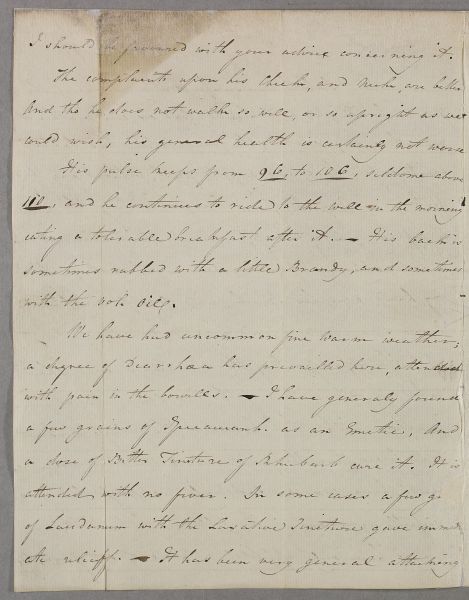 I should be favoured with your advice concerning it.
The complaints upon his Cheek, and Neck, are better
And tho he does not walk so well, or so upright as we
could wish, his general health is certainly not worse
His pulse keeps from 96, to 106, seldome above
110, and he continues to ride to the well in the morning
eating a tolerable breakfast after it. — His back is
sometimes rubbed with a little Brandy, and sometimes
with the vol: Oils.
We have had uncommon fine warm weather;
a degree of Diarrhœa has prevailled here, attended
with pain in the bowells. — I have generaly found
a few grains of Ipecacuanh. as an Emetic, And
a dose of Bitter Tincture of Rhubarb cure it. It is
attended with no fever. In some cases a few g
of Laudanum with the Laxative Tincture gave immedi
ate relieff. — It has been very general attacking